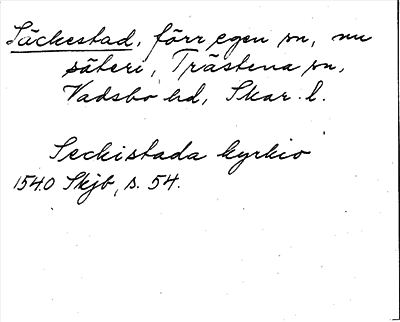 Säckestad, förr egen sn, nu
säteri, Trästena sn,
Vadsbo hd, Skar. l.
Seckistada kyrkio
1540 Skjb, s. 54.